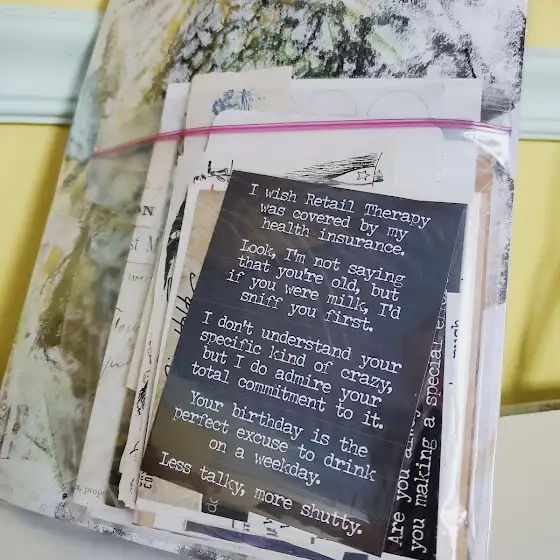 I wish Retail Therapy
was covered by my
health insurance.
Look, I'm not saying
that you're old, but
if you were milk, I'd
sniff you first.
I don't understand your
specific kind of crazy,
but I do admire your
total commitment to it.
Your birthday is the
perfect excuse to drink
on a weekday.
Less talky, more shutty.
Are you
you making a special
ON